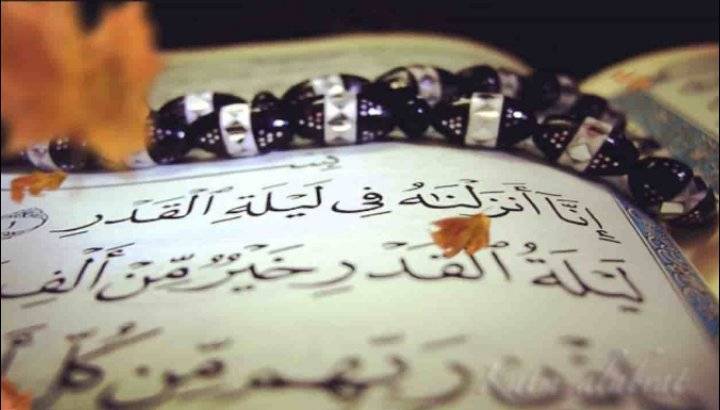 إِنَّا أَنزَلْنَٰهُ فِي لَيْلَةِ ٱلْقَدْرِ ١
لَيْلَةُ ٱلْقَدْرِ خَيْرٌ مِّنْ أَلْفِ
رَبِّهِم مِّن كُلِّ